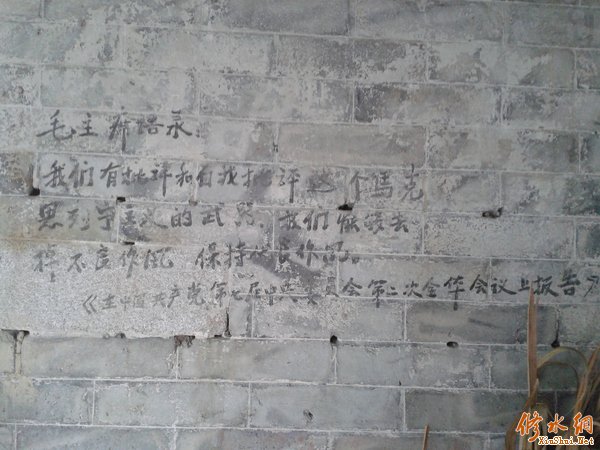 毛主席语录
我们有批评和自我批评这个马克
思列宁主义的武器，我们能够去
掉不良作风，保持优良作风。
《在中国共产党第七届中央委员会第二次全体会议上报告》
修水網
XiuShui.Net